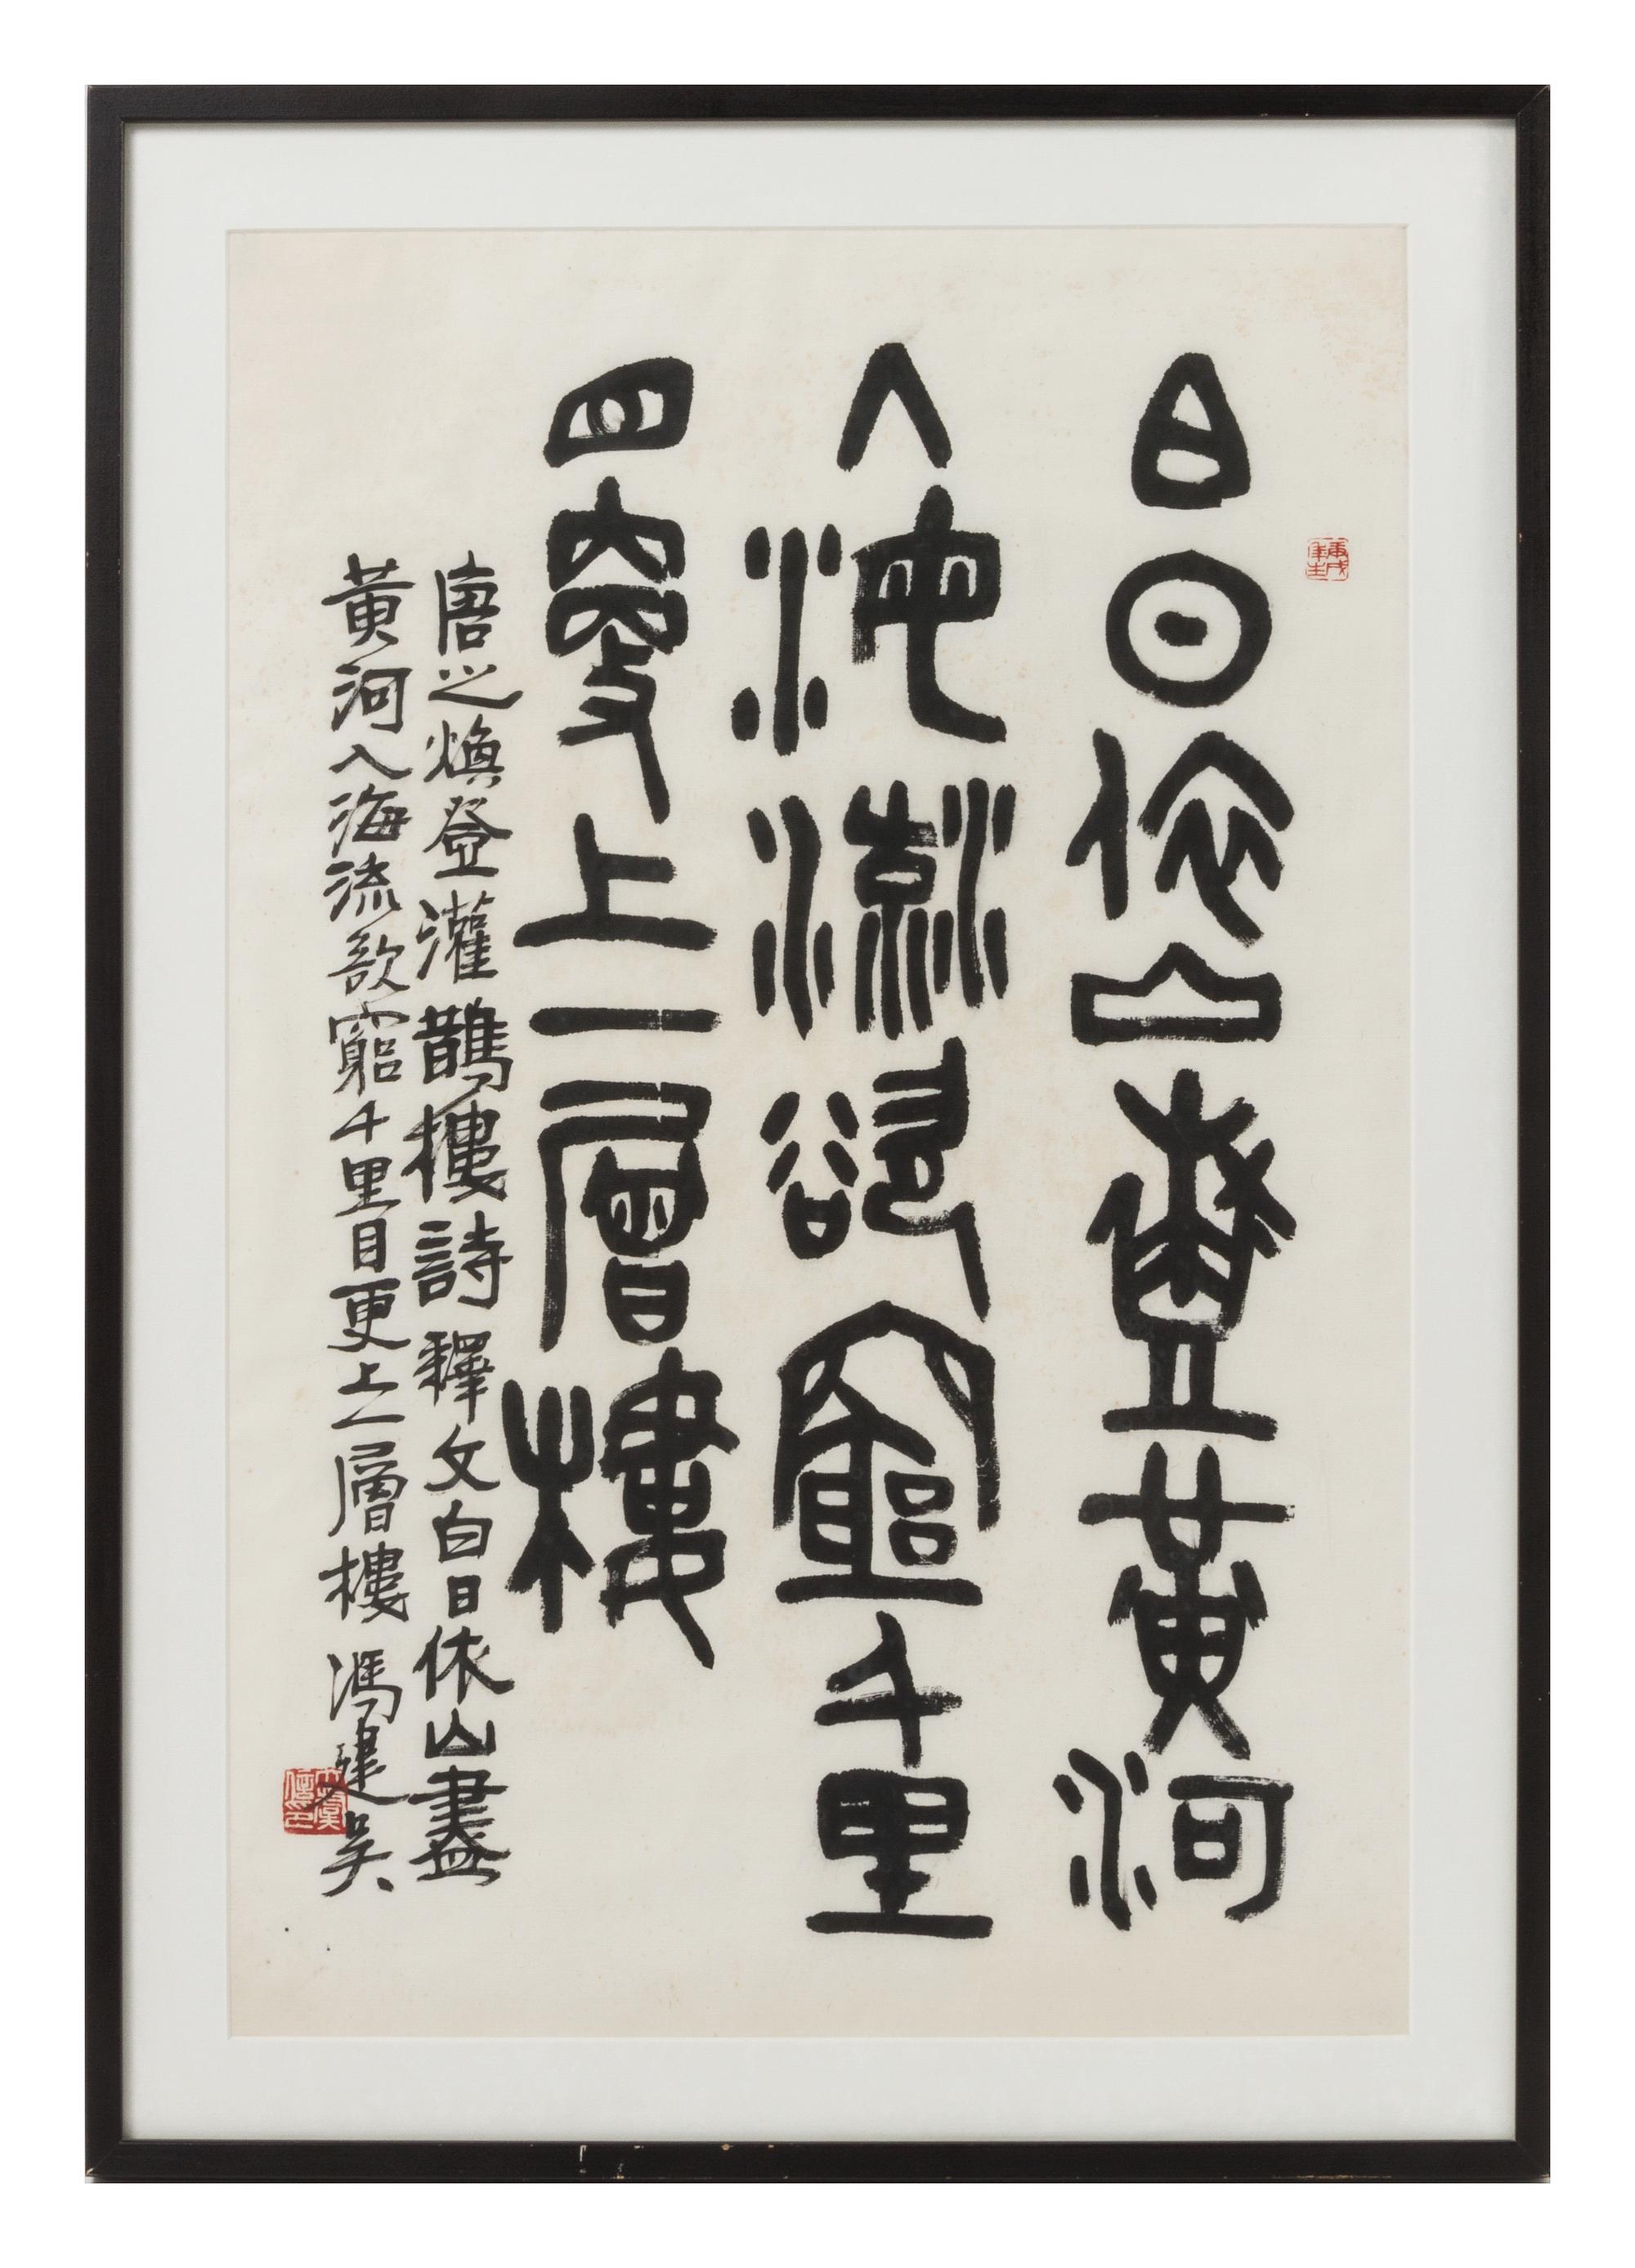 白日依山盡黃河
入海流欲窮千里
目更上一層樓
唐之煥登灌鵲樓詩釋文白日依山盡
黃河入海流欲窮千里目更上一層樓馮建吳